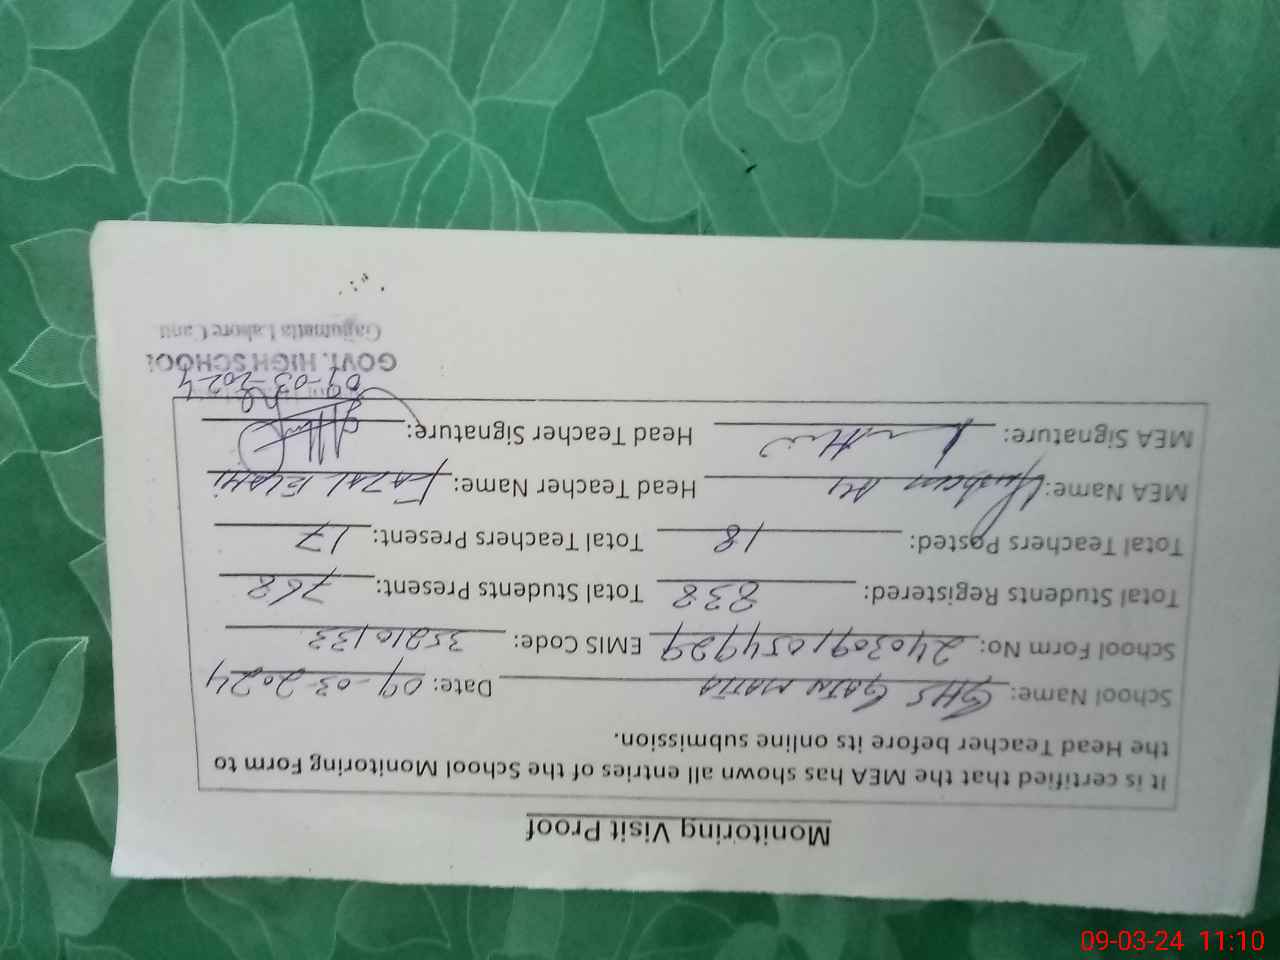 Monitoring Visit Proof
It is certified that the MEA has shown all entries of the School Monitoring Form to
the Head Teacher before its online submission.
School Name: GHS GAJU MATTA Date: 09-03-2024
School Form No: 2403091054929 EMIS Code: 35210133
Total Students Registered: 838 Total Students Present: 768
Total Teachers Posted: 18 Total Teachers Present: 17
MEA Name: Head Teacher Name: FAZAL ELAHI
MEA Signature: Head Teacher Signature:
09-03-2024
GOVT. HIGH SCHOOL
Gajjumatta Lahore Cantt
09-03-24 11:10